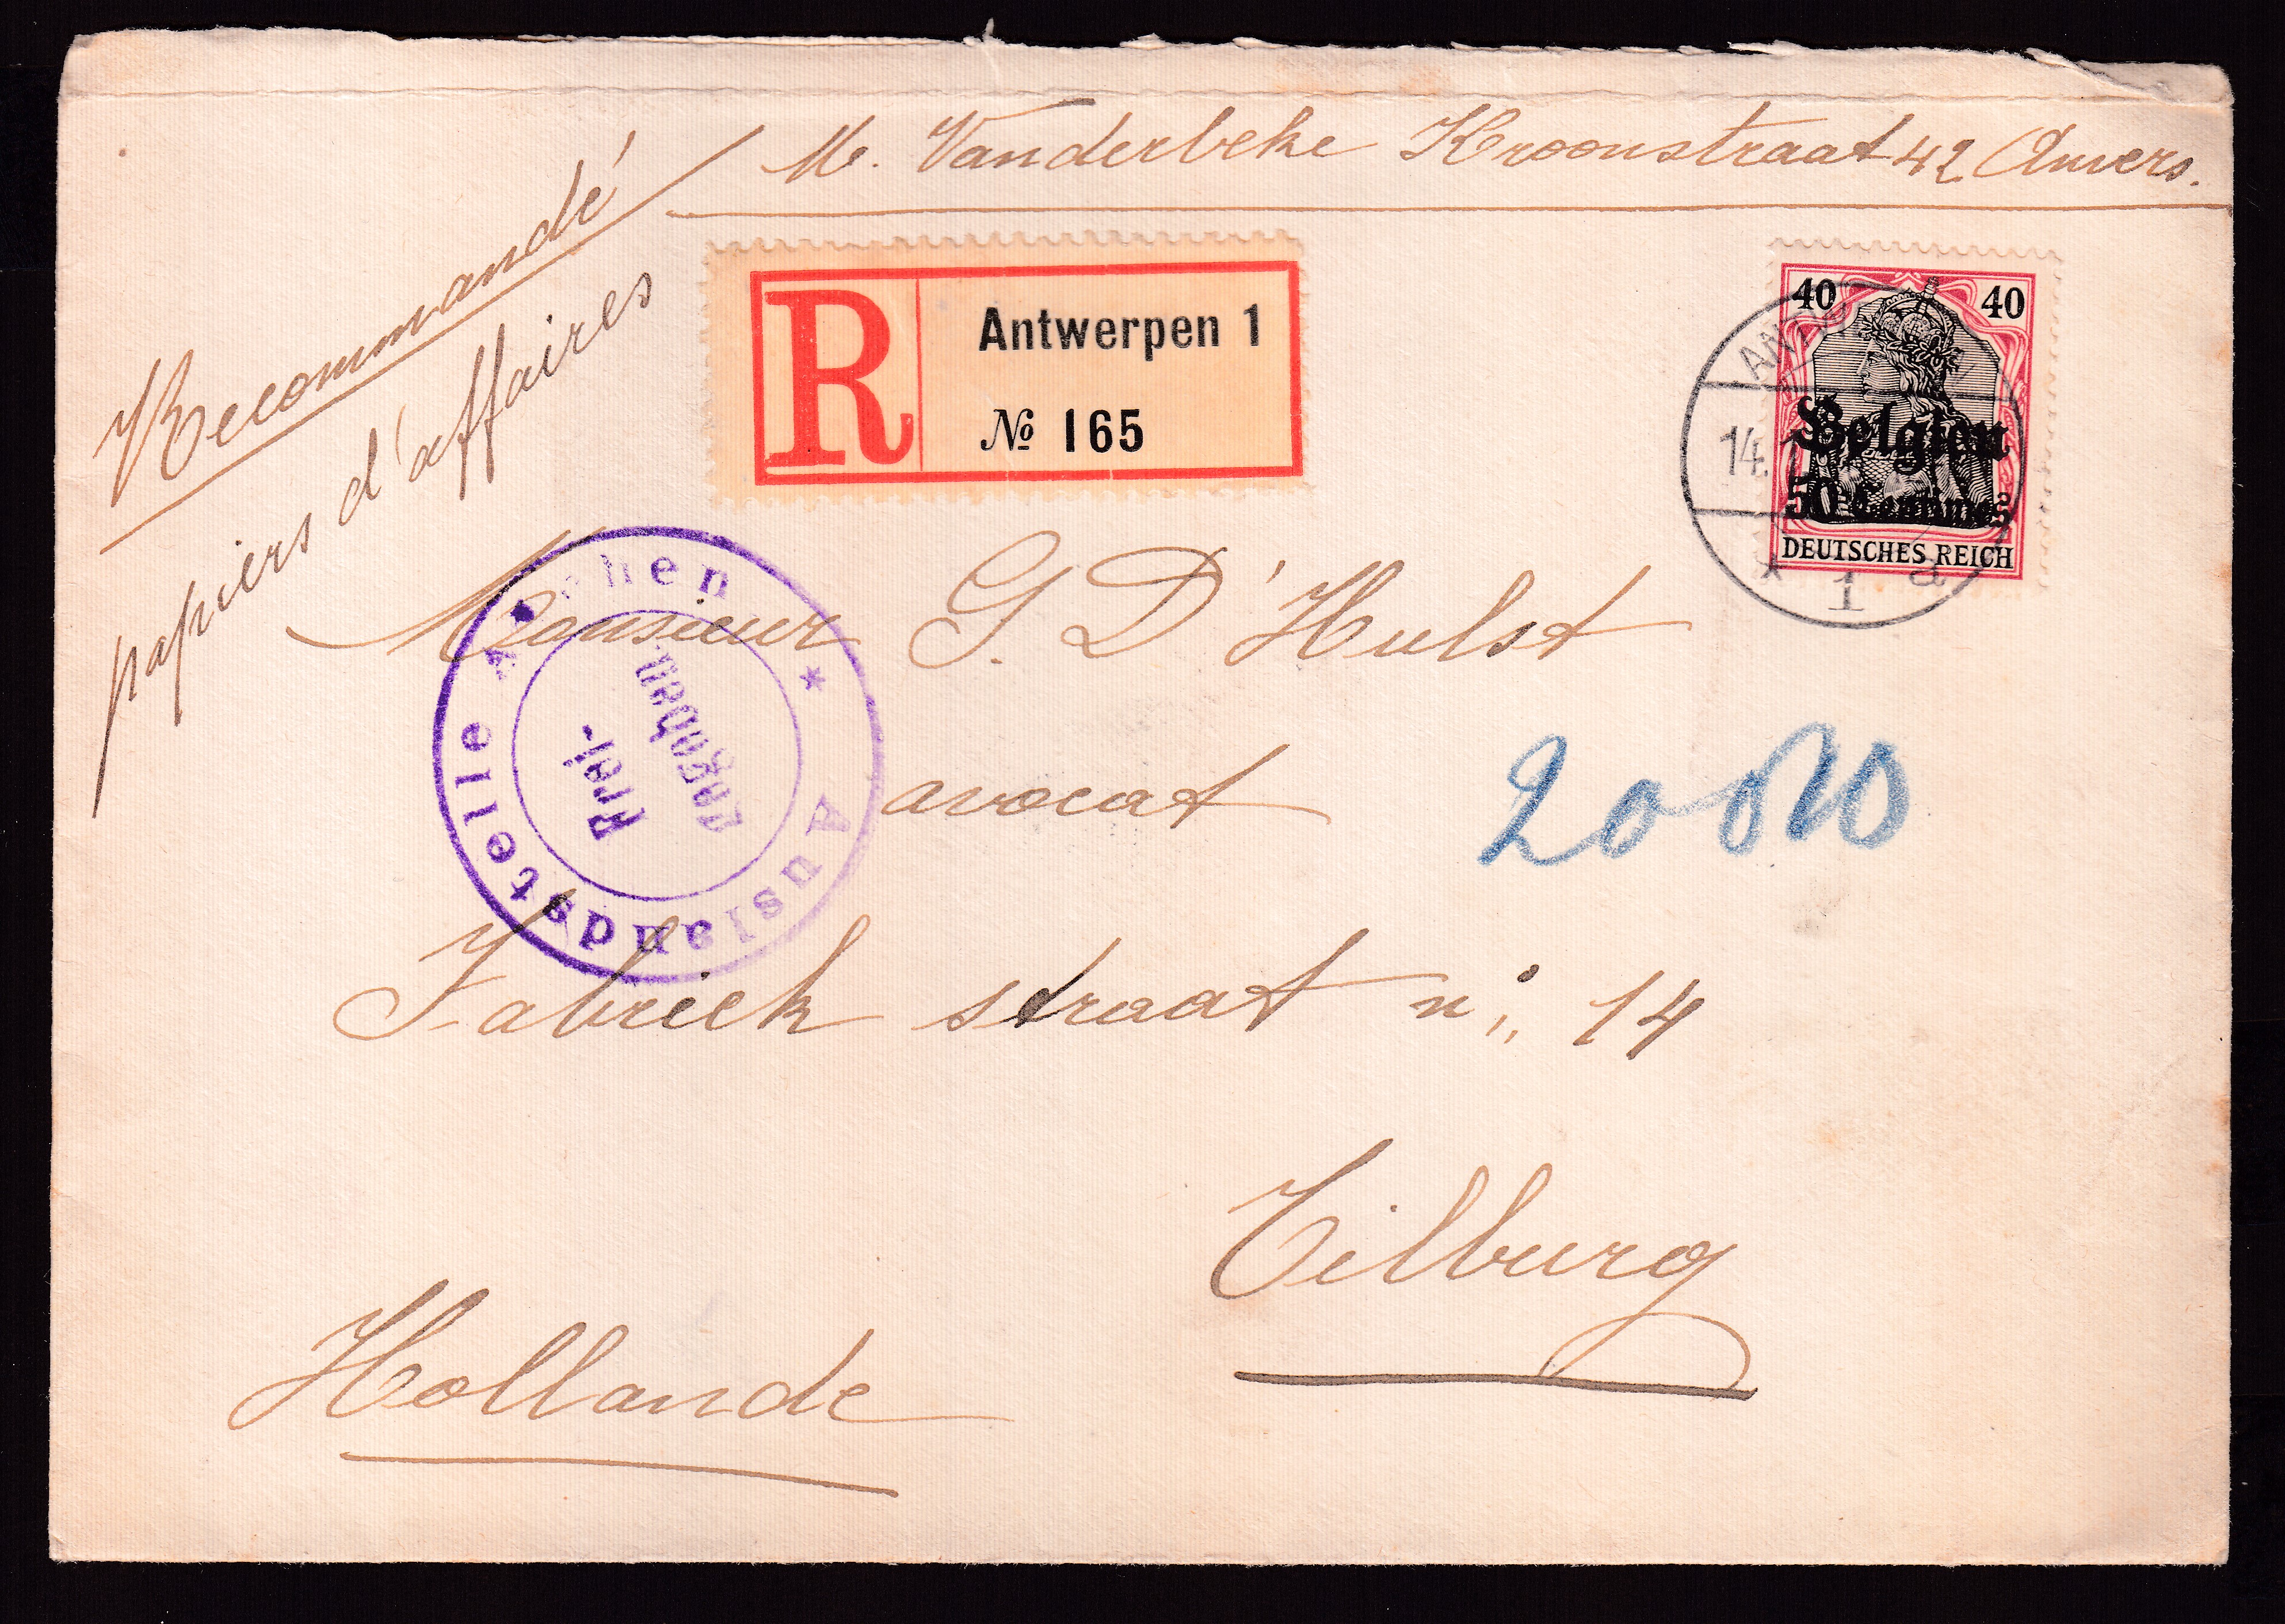 M. Vanderbeke Kroonstraat 42 Anvers.
Recommandé
papiers d'affaires
R
Antwerpen 1
№ 165
40 40
Belgien
50 Centimes
DEUTSCHES REICH
14.
* 1 a
Monsieur G. D'Hulst
avocat
Fabriek straat n° 14
Tilburg
Hollande
Auslandstelle Aachen *
Frei-
gegeben